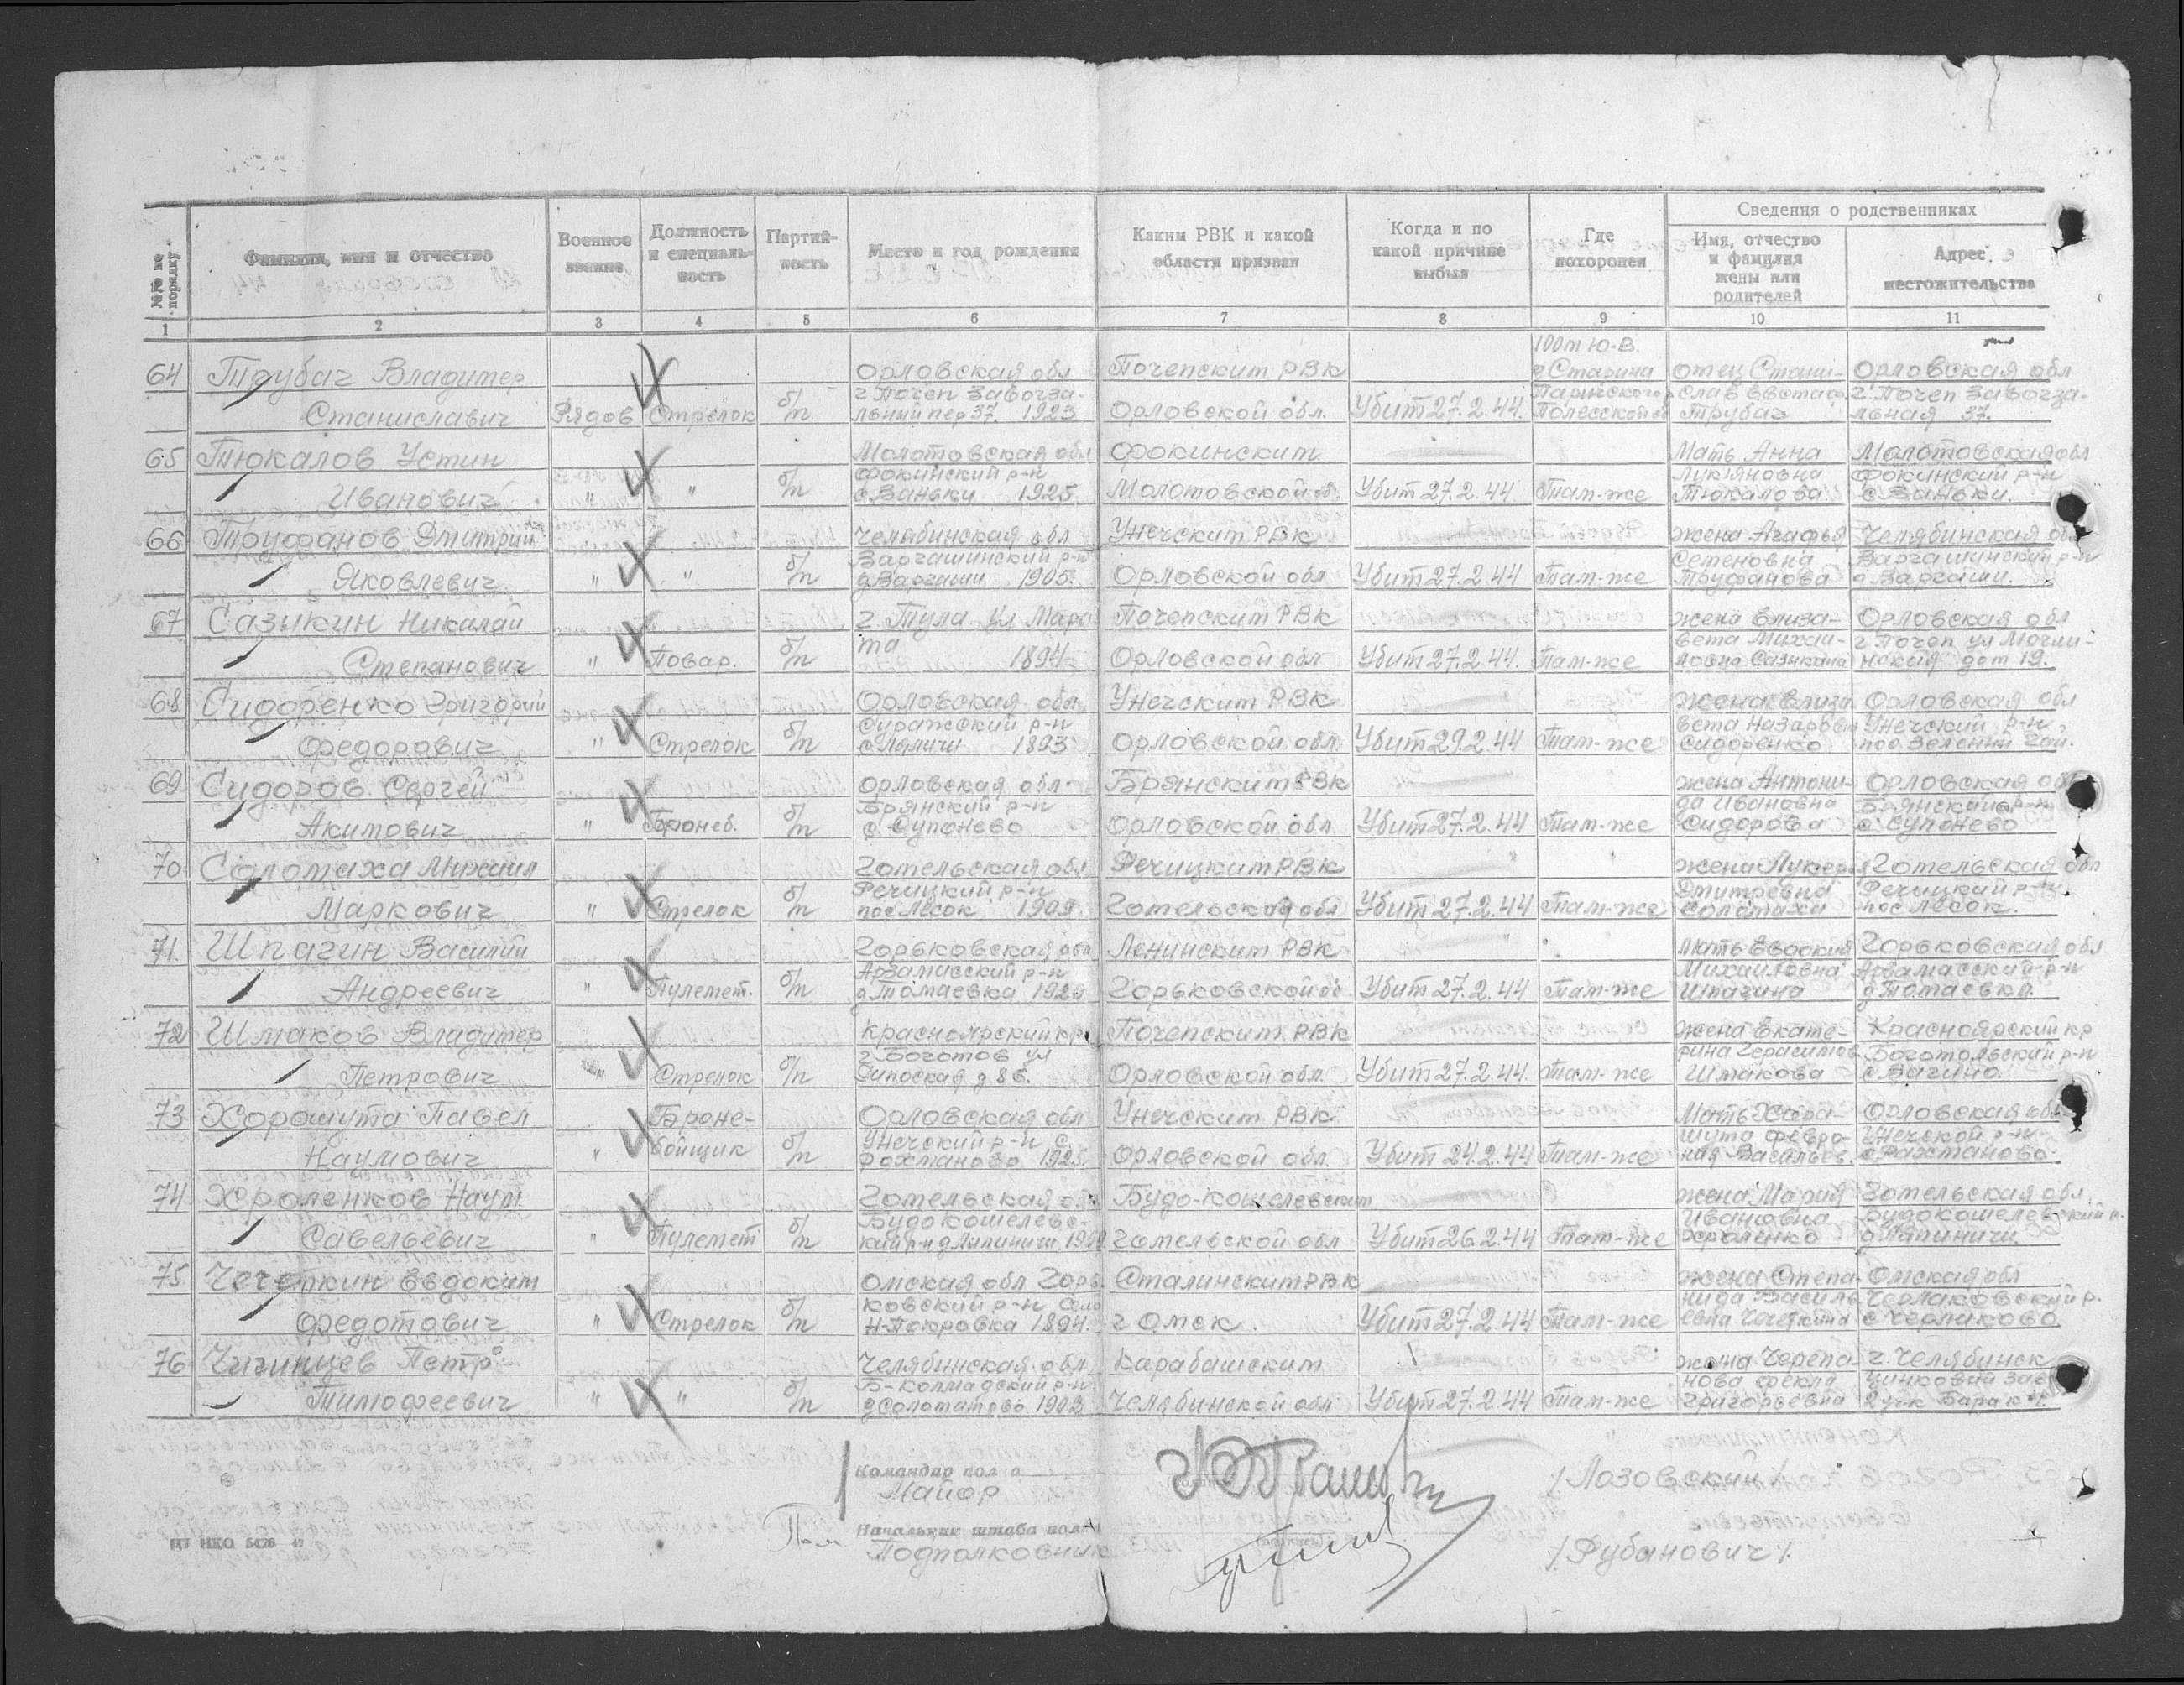 №№ по порядку
Фамилия, имя и отчество
Военное звание
Должность и специальность
Партийность
Место и год рождения
Каким РВК и какой области призван
Когда и по какой причине выбыл
Где похоронен
Сведения о родственниках
Имя, отчество и фамилия жены или родителей
Адрес местожительства
1 2 3 4 5 6 7 8 9 10 11
100м Ю-В.
64 Трубач Владимер Орловская обл Почепским РВК д Старина отец Стани- Орловская обл
г Почеп Завокза- Паричского слав Евстаф. г. Почеп Завокза-
Станиславич Рядов Стрелок б/п льный пер 37. 1923 Орловской обл. Убит 27.2.44. Полесской Трубач льная 37.
65 Тюкалов Устин Молотовская обл Фокинским Мать Анна Молотовская обл
Фокинский р-н Лукияновна Фокинский р-н
Иванович " " б/п с Ваньки 1925. Молотовской Убит 27.2.44. Там-же Тюкалова
66 Труфанов Дмитрий Челябинская обл Унечским РВК жена Агафья Челябинская обл
Варгашинский р-н Семеновна Варгашинский р-н
Яковлевич " " б/п д Варгаши 1905. Орловской обл Убит 27.2.44 Там-же Труфанова д Варгаши.
67 Сазыкин Николай г. Тула ул Мара Почепским РВК жена Елиза- Орловская обл
та вета Михаи- г Почеп ул
Степанович " Повар. б/п 1894 Орловской обл Убит 27.2.44. Там-же дом 19.
68 Сидоренко Григорий Орловская обл Унечским РВК жена Елиза Орловская обл
Суражский р-н вета Назаров Унечский р-н
Федорович " Стрелок б/п с Ляличи 1893 Орловской обл Убит 29.2.44 Там-же Сидоренко пос. Зелений Гай.
69 Сидоров Сергей Орловская обл. Брянским РВК жена Антони- Орловская обл
Брянский р-н да Ивановна р-н
Акимович " Бронеб. б/п с. Супонево Орловской обл Убит 27.2.44 Там-же Сидорова с Супонево
70 Соломаха Михаил Гомельская обл Речицким РВК жена Лукерия Гомельская обл
Речицкий р-н Дмитревна Речицкий р-н.
Маркович " Стрелок б/п пос Лесок 1909 Гомельской обл Убит 27.2.44 Там-же Соломаха пос Лесок.
71. Шпагин Василий Горьковская обл Ленинским РВК мать Евдокия Горьковская обл
Арзамасский р-н Михаиловна Арзамасский р-н
Андреевич " Пулемет. б/п д Томаевка Горьковской об Убит 27.2.44 Там-же Шпагина д Томаевка.
72 Шмаков Владимер Красноярский кр Почепским РВК жена Екате- Красноярский кр
г Боготов ул рина Герасимов Боготольский р-н
Петрович " Стрелок б/п д 86. Орловской обл. Убит 27.2.44. Там-же Шмакова с Вагино.
73 Хорошута Павел Броне- Орловская обл Унечским РВК Мать Хоро- Орловская обл
Унечский р-н с шута Февро- Унечской р-н
Наумович " бойщик б/п Рохманово 1925. Орловской обл. Убит 24.2.44 Там-же ния Васильев. с Рахманово.
74 Хроленков Наум Гомельская об Будо-кошелевским жена Мария Гомельская обл.
Будокошелевс- Ивановна Будокошелевский р-
Савельевич " Пулемет б/п кий р-н д Липиничи Гомельской обл Убит 26.2.44 Там-же Хроленко д Ляпиничи.
75 Чечеткин Евдоким Омская обл Горь- Сталинским РВК жена Степа- Омская обл
ковский р-н Село нида Василь- Черлаковский р.
Федотович " Стрелок б/п Н-Покровка 1894. г Омск. Убит 27.2.44 Там-же евна Чечеткина с Черлаково.
76 Чигинцев Петр Челябинская обл Карабашским жена Черепа- г. Челябинск
р-н нова Фекла Цинковий зав
Тимофеевич " " б/п д Соломатово 1902 Челябинской обл Убит 27.2.44 Там-же Григорьевна Барак
Командир полка
Майор /Лозовский/
Пом Начальник штаба полка
Подполковник /Рубанович/.
НКО